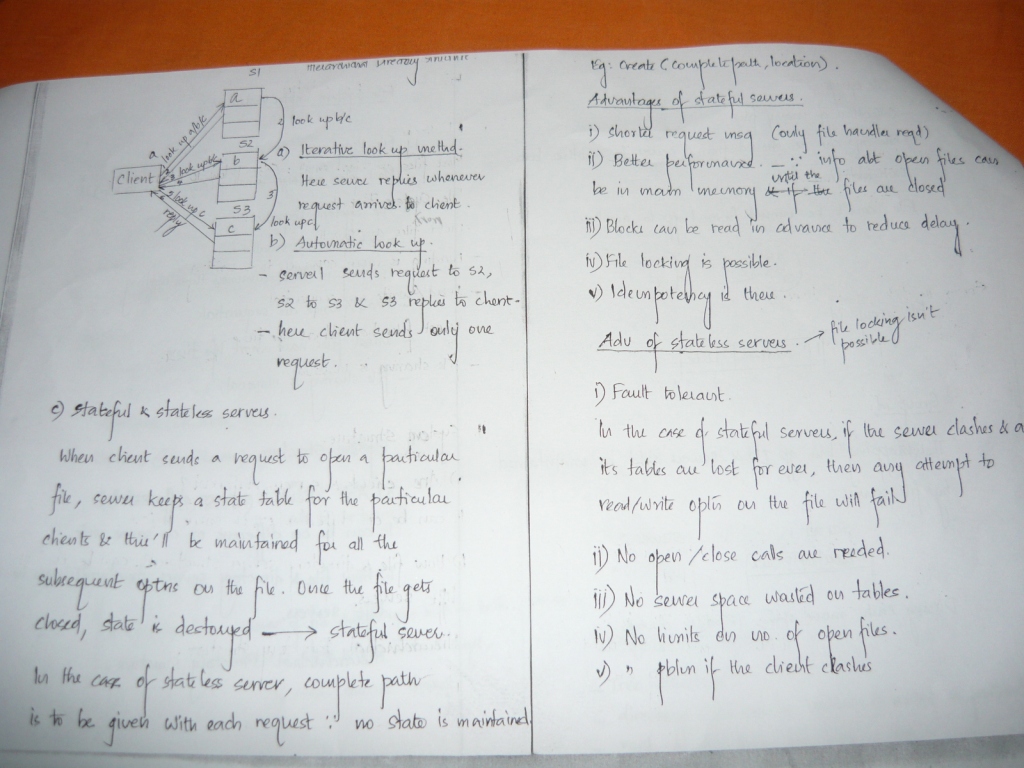 S1
a
look up a/b/c
2 look up b/c
a
S2
b
look up b/c
Client
3
S3
c
look up c
reply
look up c
a) Iterative look up method.
Here server replies whenever
request arrives to client.
b) Automatic look up.
- server1 sends request to S2,
S2 to S3 & S3 replies to client.
- here client sends only one
request.
c) stateful & stateless servers.
When client sends a request to open a particular
file, server keeps a state table for the particular
clients & this'll be maintained for all the
subsequent optns on the file. Once the file gets
closed, state is destroyed → stateful server.
In the case of stateless server, complete path
is to be given with each request ∵ no state is maintained
Eg: create (complete path, location).
Advantages of stateful servers.
i) Shorter request msg (only file handler reqd)
ii) Better performance. — ∵ info abt open files can
be in main memory until the files are closed
iii) Blocks can be read in advance to reduce delay.
iv) File locking is possible.
v) Idempotency is there.
Adv of stateless servers. → file locking isn't
possible
i) Fault tolerant.
In the case of stateful servers, if the server clashes & a
its tables are lost for ever, then any attempt to
read/write optn on the file will fail
ii) No open / close calls are needed.
iii) No server space wasted on tables.
iv) No limits on no. of open files.
v) " pblm if the client clashes